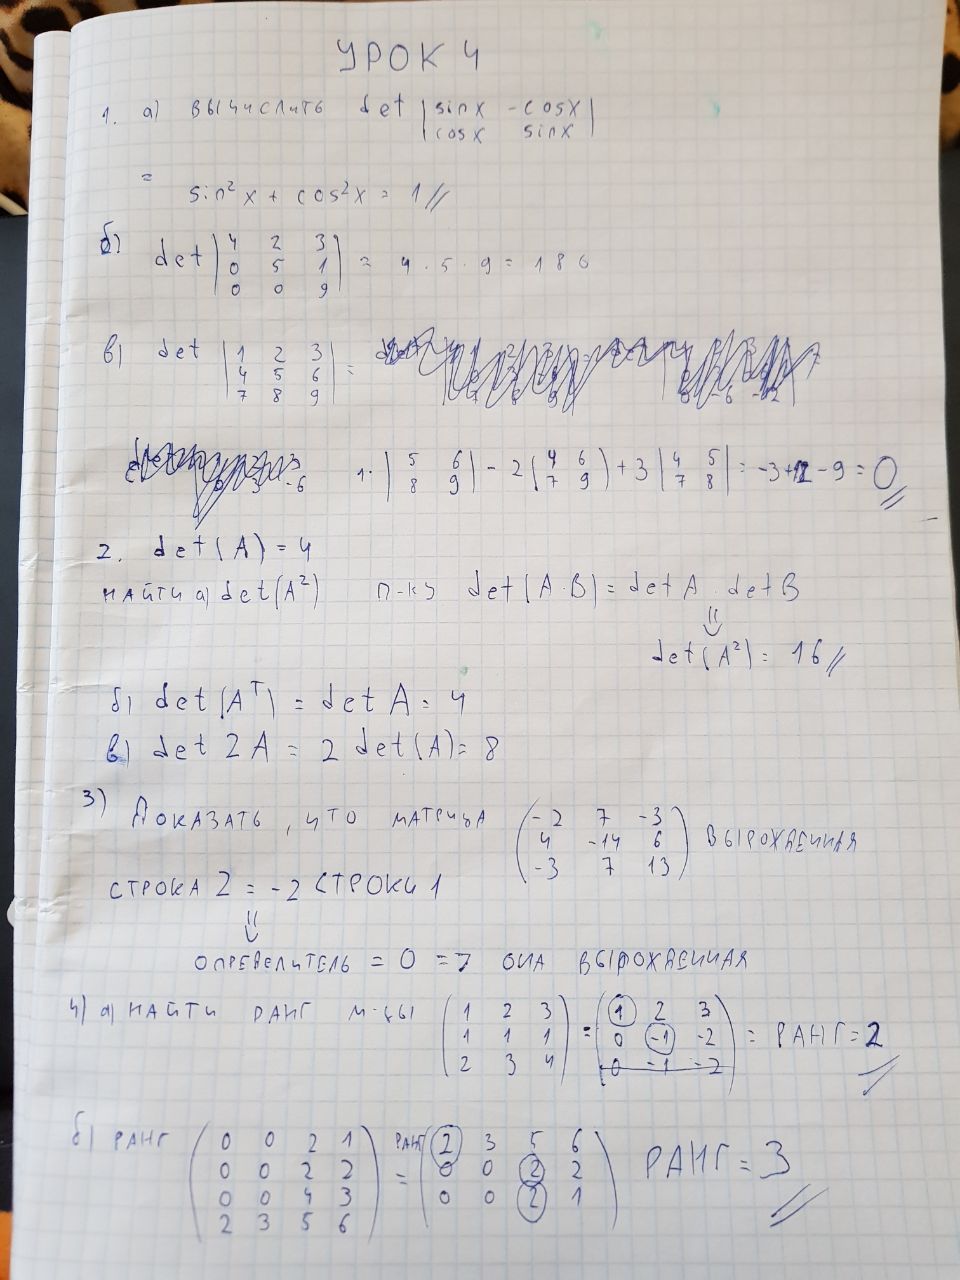 УРОК 4
1. а) ВЫЧИСЛИТЬ det |sinx -cosx|
|cosx sinx|
=
sin²x + cos²x = 1 //
б) det |4 2 3|
|0 5 1| = 4 · 5 · 9 = 180
|0 0 9|
в) det |1 2 3|
|4 5 6| =
|7 8 9|
1· |5 6| - 2 (4 6) + 3 |4 5| = -3+12-9 = 0
|8 9| (7 9) |7 8|
2. det(A) = 4
НАЙТИ а) det(A²) П-КУ det(A·B) = detA · detB
⇓
det(A²) = 16 //
б) det(Aᵀ) = det A = 4
в) det 2A = 2 det(A) = 8
3) ДОКАЗАТЬ, ЧТО МАТРИЦА (-2 7 -3)
(4 -14 6) ВЫРОЖДЕННАЯ
(-3 7 13)
СТРОКА 2 = -2 СТРОКИ 1
⇓
ОПРЕДЕЛИТЕЛЬ = 0 => ОНА ВЫРОЖДЕННАЯ
4) а) НАЙТИ РАНГ М-ЦЫ (1 2 3) (1 2 3)
(1 1 1) = (0 -1 -2) = РАНГ = 2
(2 3 4) (0 -1 -2)
б) РАНГ (0 0 2 1) РАНГ (2 3 5 6)
(0 0 2 2) = (0 0 2 2) РАНГ = 3
(0 0 4 3) (0 0 2 1)
(2 3 5 6)